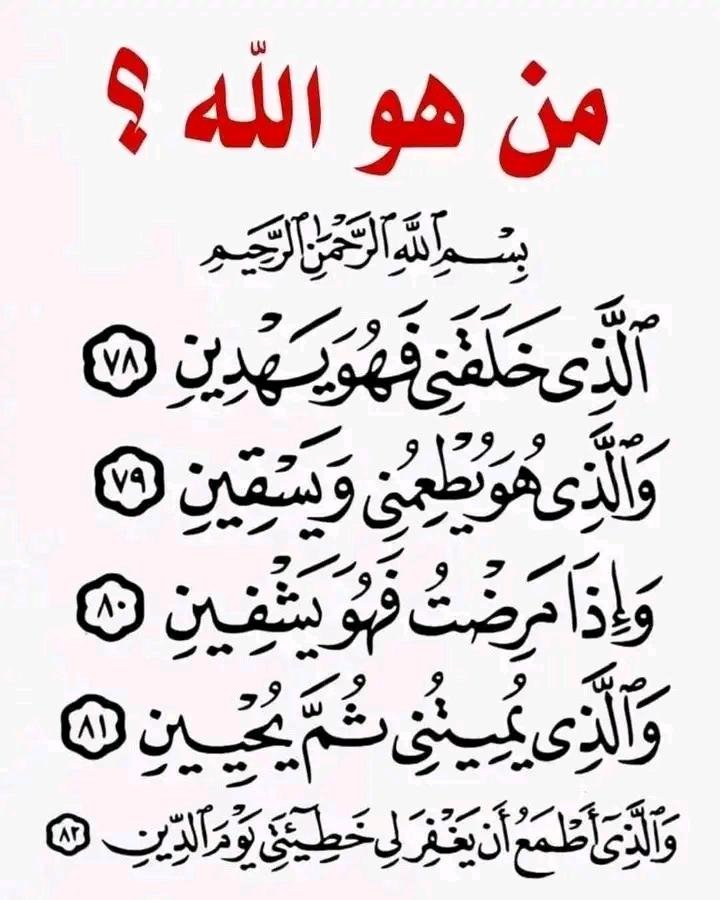 من هو الله ؟
بِسْمِ ٱللَّهِ ٱلرَّحْمَٰنِ ٱلرَّحِيمِ
ٱلَّذِى خَلَقَنِى فَهُوَ يَهْدِينِ ٧٨
وَٱلَّذِى هُوَ يُطْعِمُنِى وَيَسْقِينِ ٧٩
وَإِذَا مَرِضْتُ فَهُوَ يَشْفِينِ ٨٠
وَٱلَّذِى يُمِيتُنِى ثُمَّ يُحْيِينِ ٨١
وَٱلَّذِىٓ أَطْمَعُ أَن يَغْفِرَ لِى خَطِيٓـَٔتِى يَوْمَ ٱلدِّينِ ٨٢